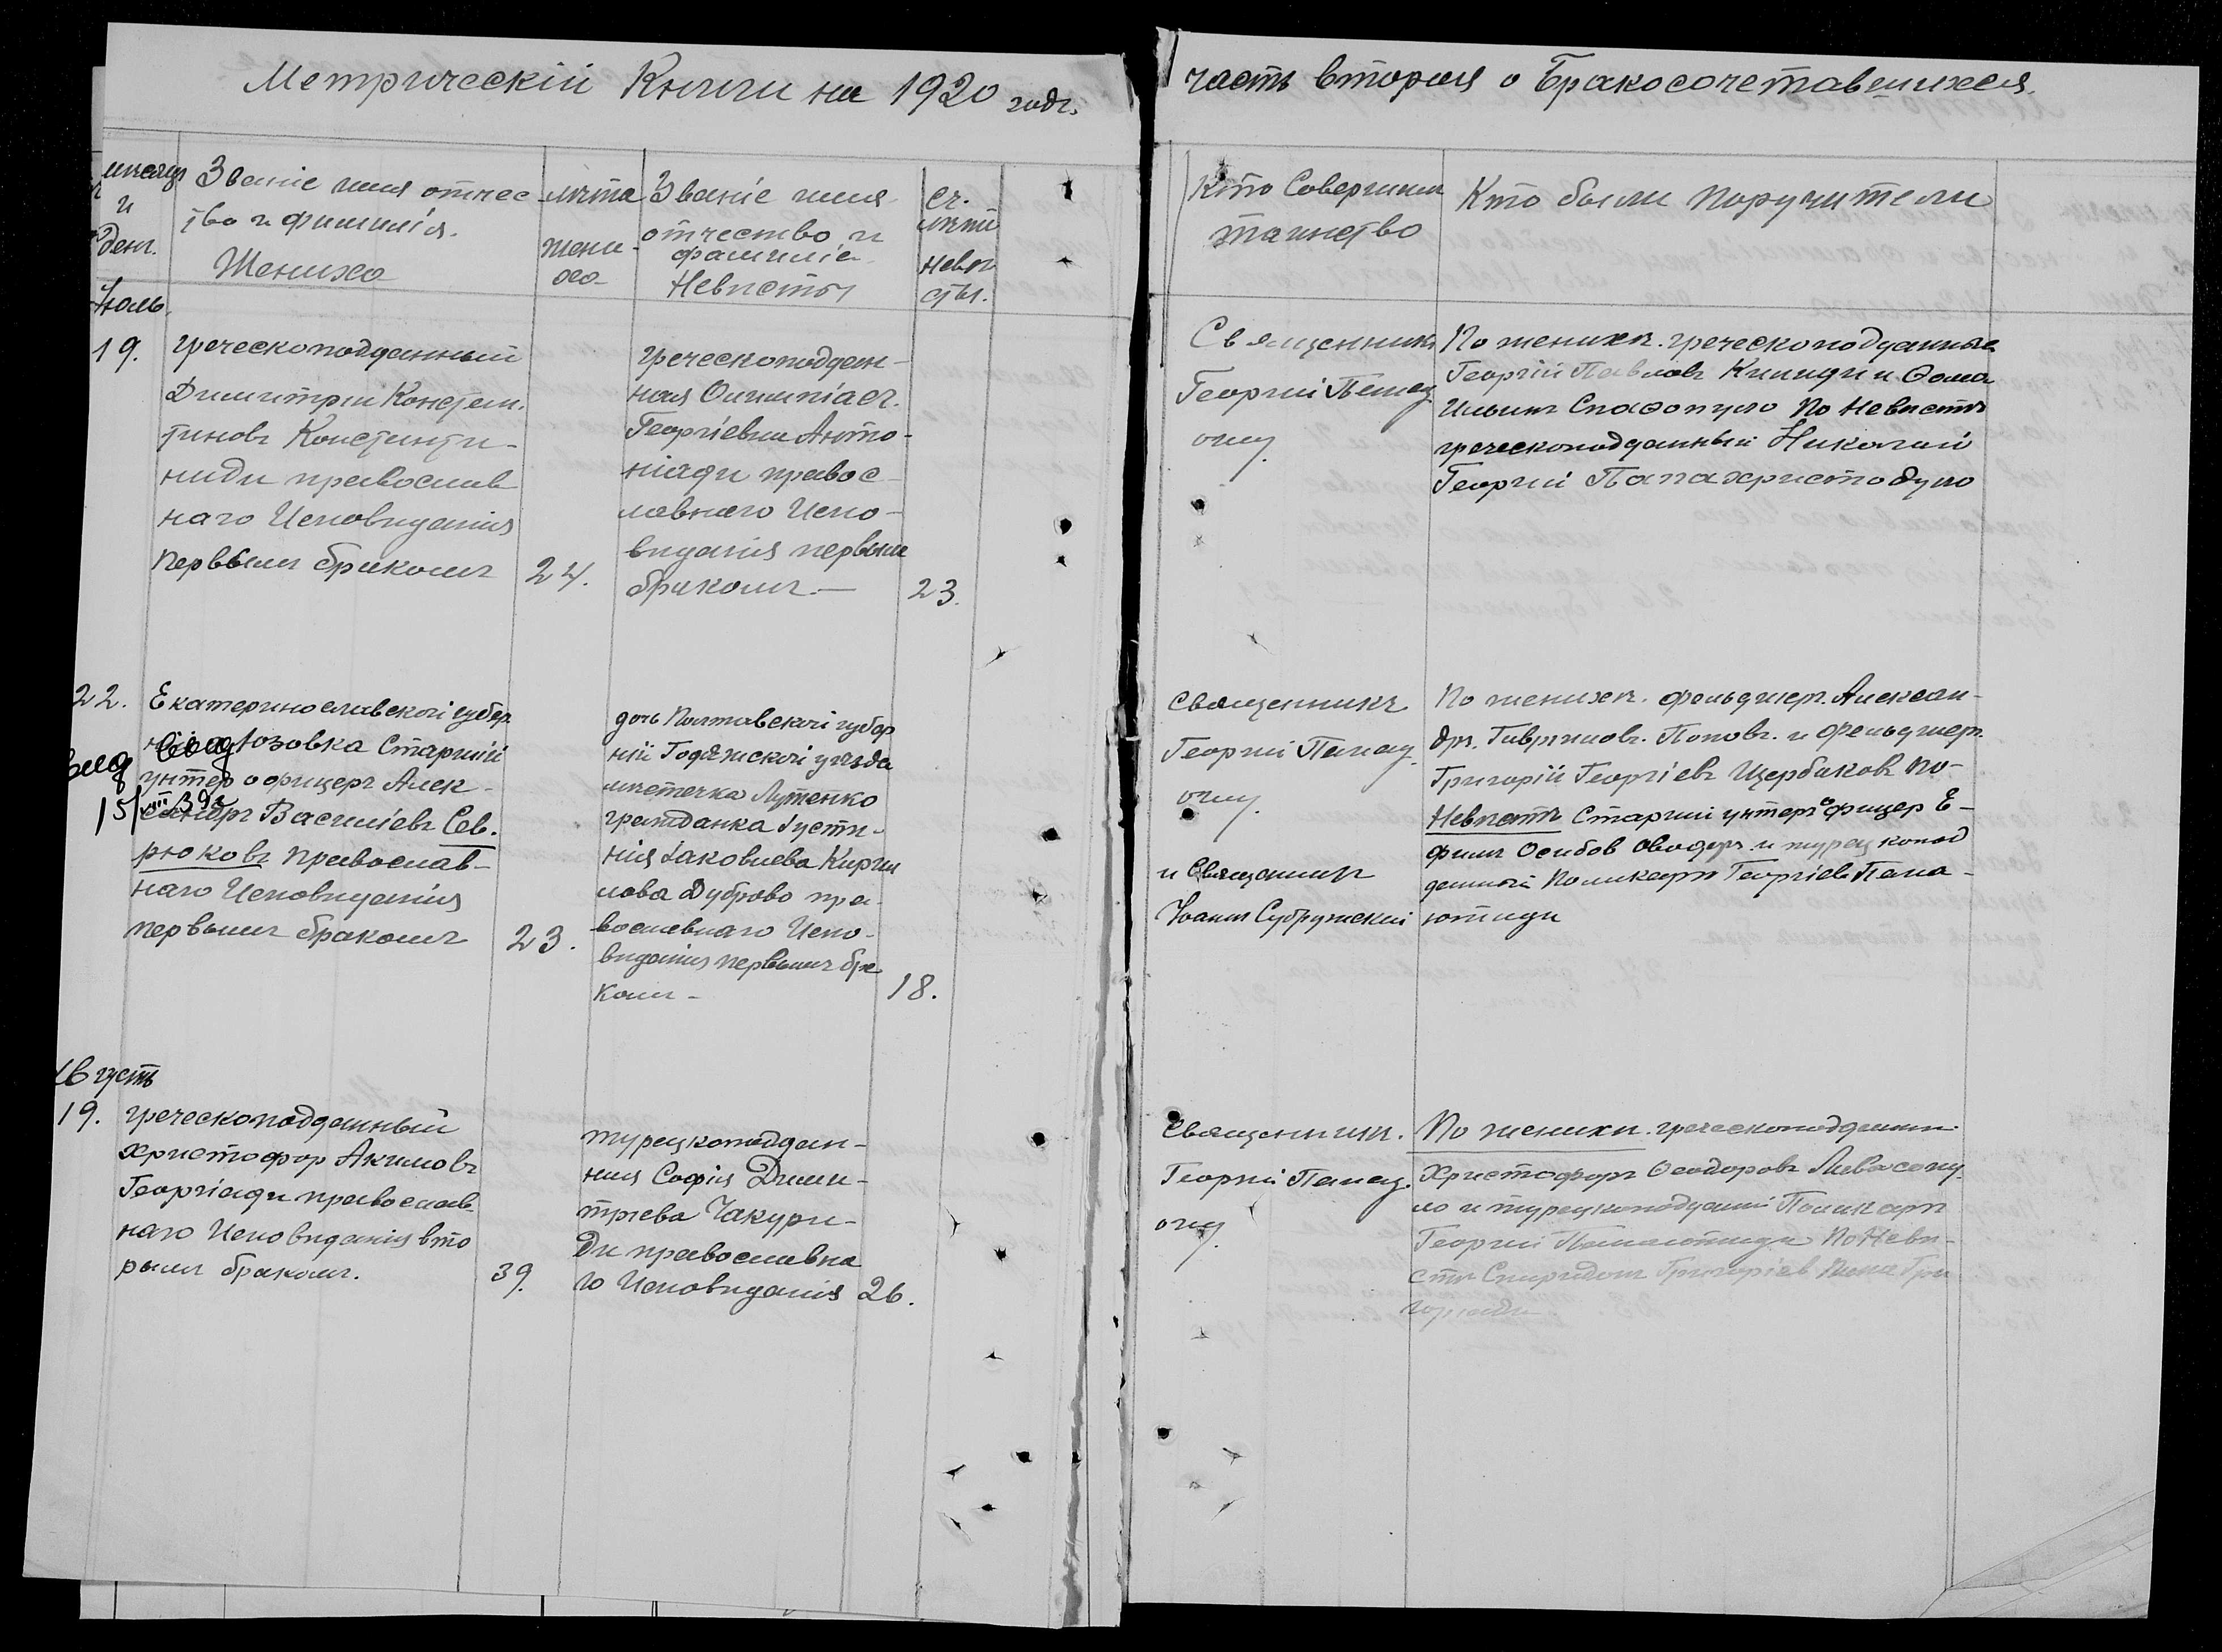 Метрической Книги на 1920 годъ
часть вторая о Бракосочетавшихся.
мѣсяцъ
и
день.
Званіе имя отчес
тво и фамилія.
Жениха
лѣта
жени-
ха
Званіе имя
отчество и
фамилія
Невѣсты
лѣта
невѣ
сты.
Кто Совершилъ
таинство
Кто были поручители
Іюль.
19.
греческоподданный
Димитрій Констан.
тиновъ Константи-
ниди православ
наго Исповѣданія
первымъ бракомъ
24.
греческоподдан-
ная
Георгіевна Анто-
ніади правос-
лавнаго Испо-
вѣданія первымъ
бракомъ —
23.
Священникъ
Георгій Папад
опу.
По женихѣ. греческоподданные
Георгій Павловъ и Ѳома
Ильинъ Спасопуло По Невѣстѣ
греческоподданный Николай
Георгій Папахристодуло
22.
Екатеринославской губер
Юзовка Старшій
унтер офицеръ Алек-
сандръ Василіевъ Сев.
рюковъ православ-
наго Исповѣданія
первымъ бракомъ
23.
дочь Полтавской губер
ніи Годяжской уѣзда
мѣстечка Лутенко
гражданка Іусти-
нія Іаковлева Кирил
лова Дуброво пра-
вославнаго Испо-
вѣданія первымъ бра
комъ -
18.
Священникъ
Георгій Папад.
опу.
и Священникъ
Іоаннъ
По женихѣ. фельдшеръ. Алексан-
дръ. Гавриловъ. Поповъ. и фельдшеръ.
Григорій Георгіевъ Щербаковъ По-
Невѣстѣ Старшій унтеръ офицер Е-
фимъ Осибов и турецкопод
данный Поликарпъ Георгіевъ Папа-
ютиди
Августъ
19.
греческоподданный
Христофор Акимовъ
Георгіади православ-
наго Исповѣданія вто
рымъ бракомъ.
39.
турецкоподдан-
ная Софія Дими-
тріева Чакури-
ди православна
го Исповѣданія
26.
Священникъ.
Георгій Папад.
опу.
По женихѣ. греческоподданный
Христофоръ Ѳеодоровъ
ло и турецкоподданный Поликарпъ
Георгій По Невѣ-
стѣ Спиридонъ Григоріев